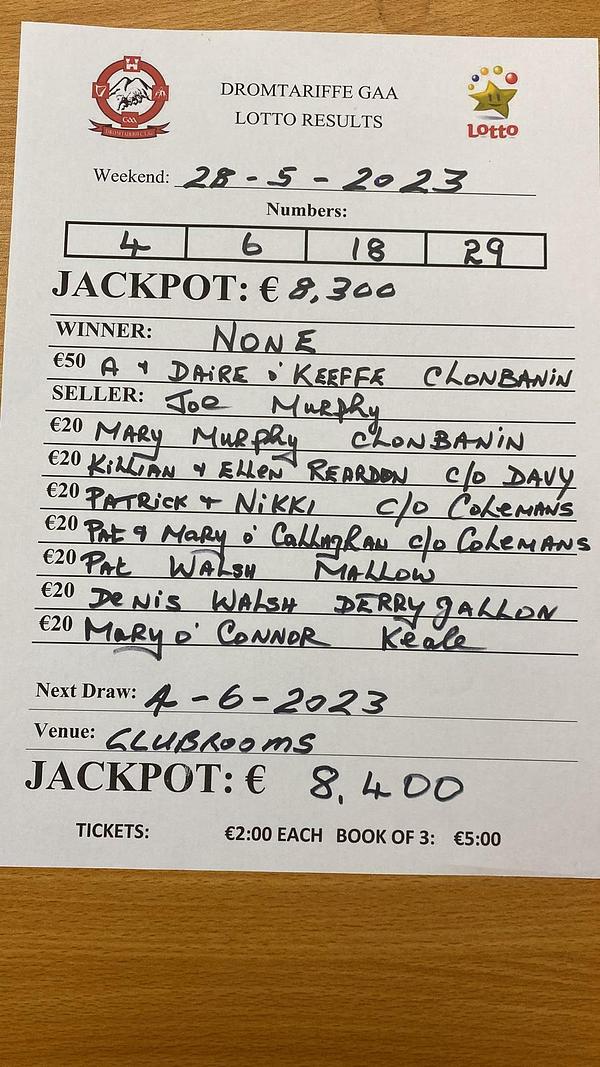 DROMTARIFFE GAA
LOTTO RESULTS
GAA
DROMTARIFFE GAA
Lotto
Weekend: 28-5-2023
Numbers:
4 6 18 29
JACKPOT: € 8,300
WINNER: NONE
€50 A & DAiRE o'KEEFFE CLONBANiN
SELLER: Joe Murphy
€20 MARY Murphy CLONBANiN
€20 KiLLiAN & ELLen REARDON c/o DAVY
€20 PATRicK + NiKKi c/o CoLeMANS
€20 Pat & Mary o' CaLLaghan c/o CoLeMANS
€20 Pat WALSH MALLOW
€20 DeNiS WALSH DERRYgALLON
€20 MaRy o' CONNOR Keale
Next Draw: 4-6-2023
Venue: CLUBRooms
JACKPOT: € 8,400
TICKETS: €2:00 EACH BOOK OF 3: €5:00